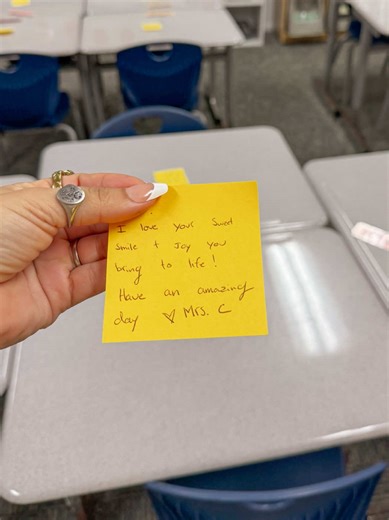 I love your sweet
smile + Joy you
bring to life!
Have an amazing
day ♡ Mrs. C